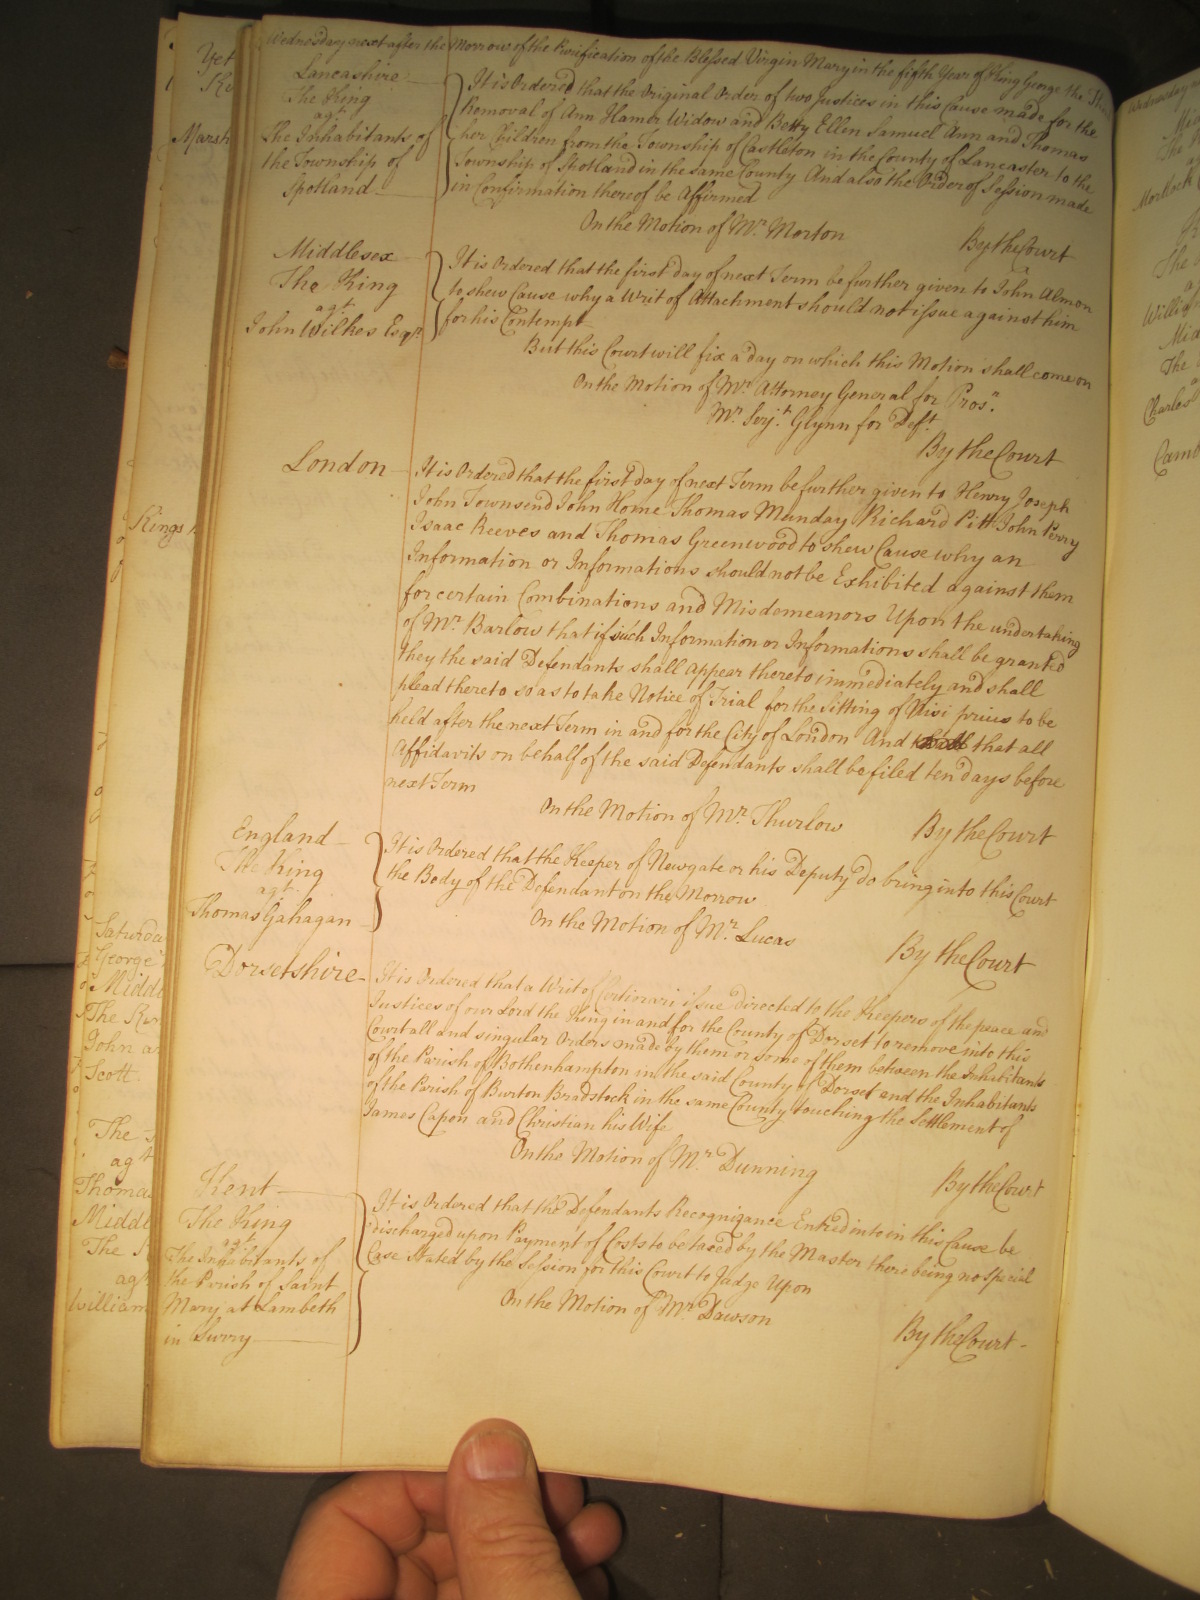 Wednesday next after the Morrow of the Purification of the Blessed Virgin Mary in the fifth Year of King George the Third
Lancashire
The King
agt.
The Inhabitants of
the Township of
Spotland
It is Ordered that the Original Order of two Justices in this Cause made for the
Removal of Ann Hamer Widow and Betty Ellen Samuel Ann and Thomas
her Children from the Township of Castleton in the County of Lancaster to the
Township of Spotland in the same County And also the Order of Session made
in Confirmation thereof be Affirmed
On the Motion of Mr. Morton
By the Court
Middlesex
The King
agt.
John Wilkes Esqr.
It is Ordered that the first day of next Term be further given to John Almon
to shew Cause why a Writ of Attachment should not issue against him
for his Contempt
But this Court will fix a day on which this Motion shall come on
On the Motion of Mr. Attorney General for Prosr.
Mr. Serjt. Glynn for Deft.
By the Court
London
It is Ordered that the first day of next Term be further given to Henry Joseph
John Townsend John Horne Thomas Munday Richard Pitt John Perry
Isaac Reeves and Thomas Greenwood to shew Cause why an
Information or Informations should not be Exhibited against them
for certain Combinations and Misdemeanors Upon the undertaking
of Mr. Barlow that if such Information or Informations shall be granted
they the said Defendants shall appear thereto immediately and shall
plead thereto so as to take Notice of Trial for the Sitting of Nisi prius to be
held after the next Term in and for the City of London And that all
Affidavits on behalf of the said Defendants shall be filed ten days before
next Term
On the Motion of Mr. Thurlow
By the Court
England
The King
agt.
Thomas Gahagan
It is Ordered that the Keeper of Newgate or his Deputy do bring into this Court
the Body of the Defendant on the Morrow
On the Motion of Mr. Lucas
By the Court
Dorsetshire
It is Ordered that a Writ of Certiorari issue Directed to the Keepers of the peace and
Justices of our Lord the King in and for the County of Dorset to remove into this
Court all and singular Orders made by them or some of them between the Inhabitants
of the Parish of Bothenhampton in the said County of Dorset and the Inhabitants
of the Parish of Burton Bradstock in the same County touching the Settlement of
James Capon and Christian his Wife
On the Motion of Mr. Dunning
By the Court
Kent
The King
agt.
The Inhabitants of
the Parish of Saint
Mary at Lambeth
in Surry
It is Ordered that the Defendants Recognizance Entred into in this Cause be
discharged upon Payment of Costs to be taxed by the Master there being no Special
Case Stated by the Session for this Court to Judge Upon
On the Motion of Mr. Dawson
By the Court